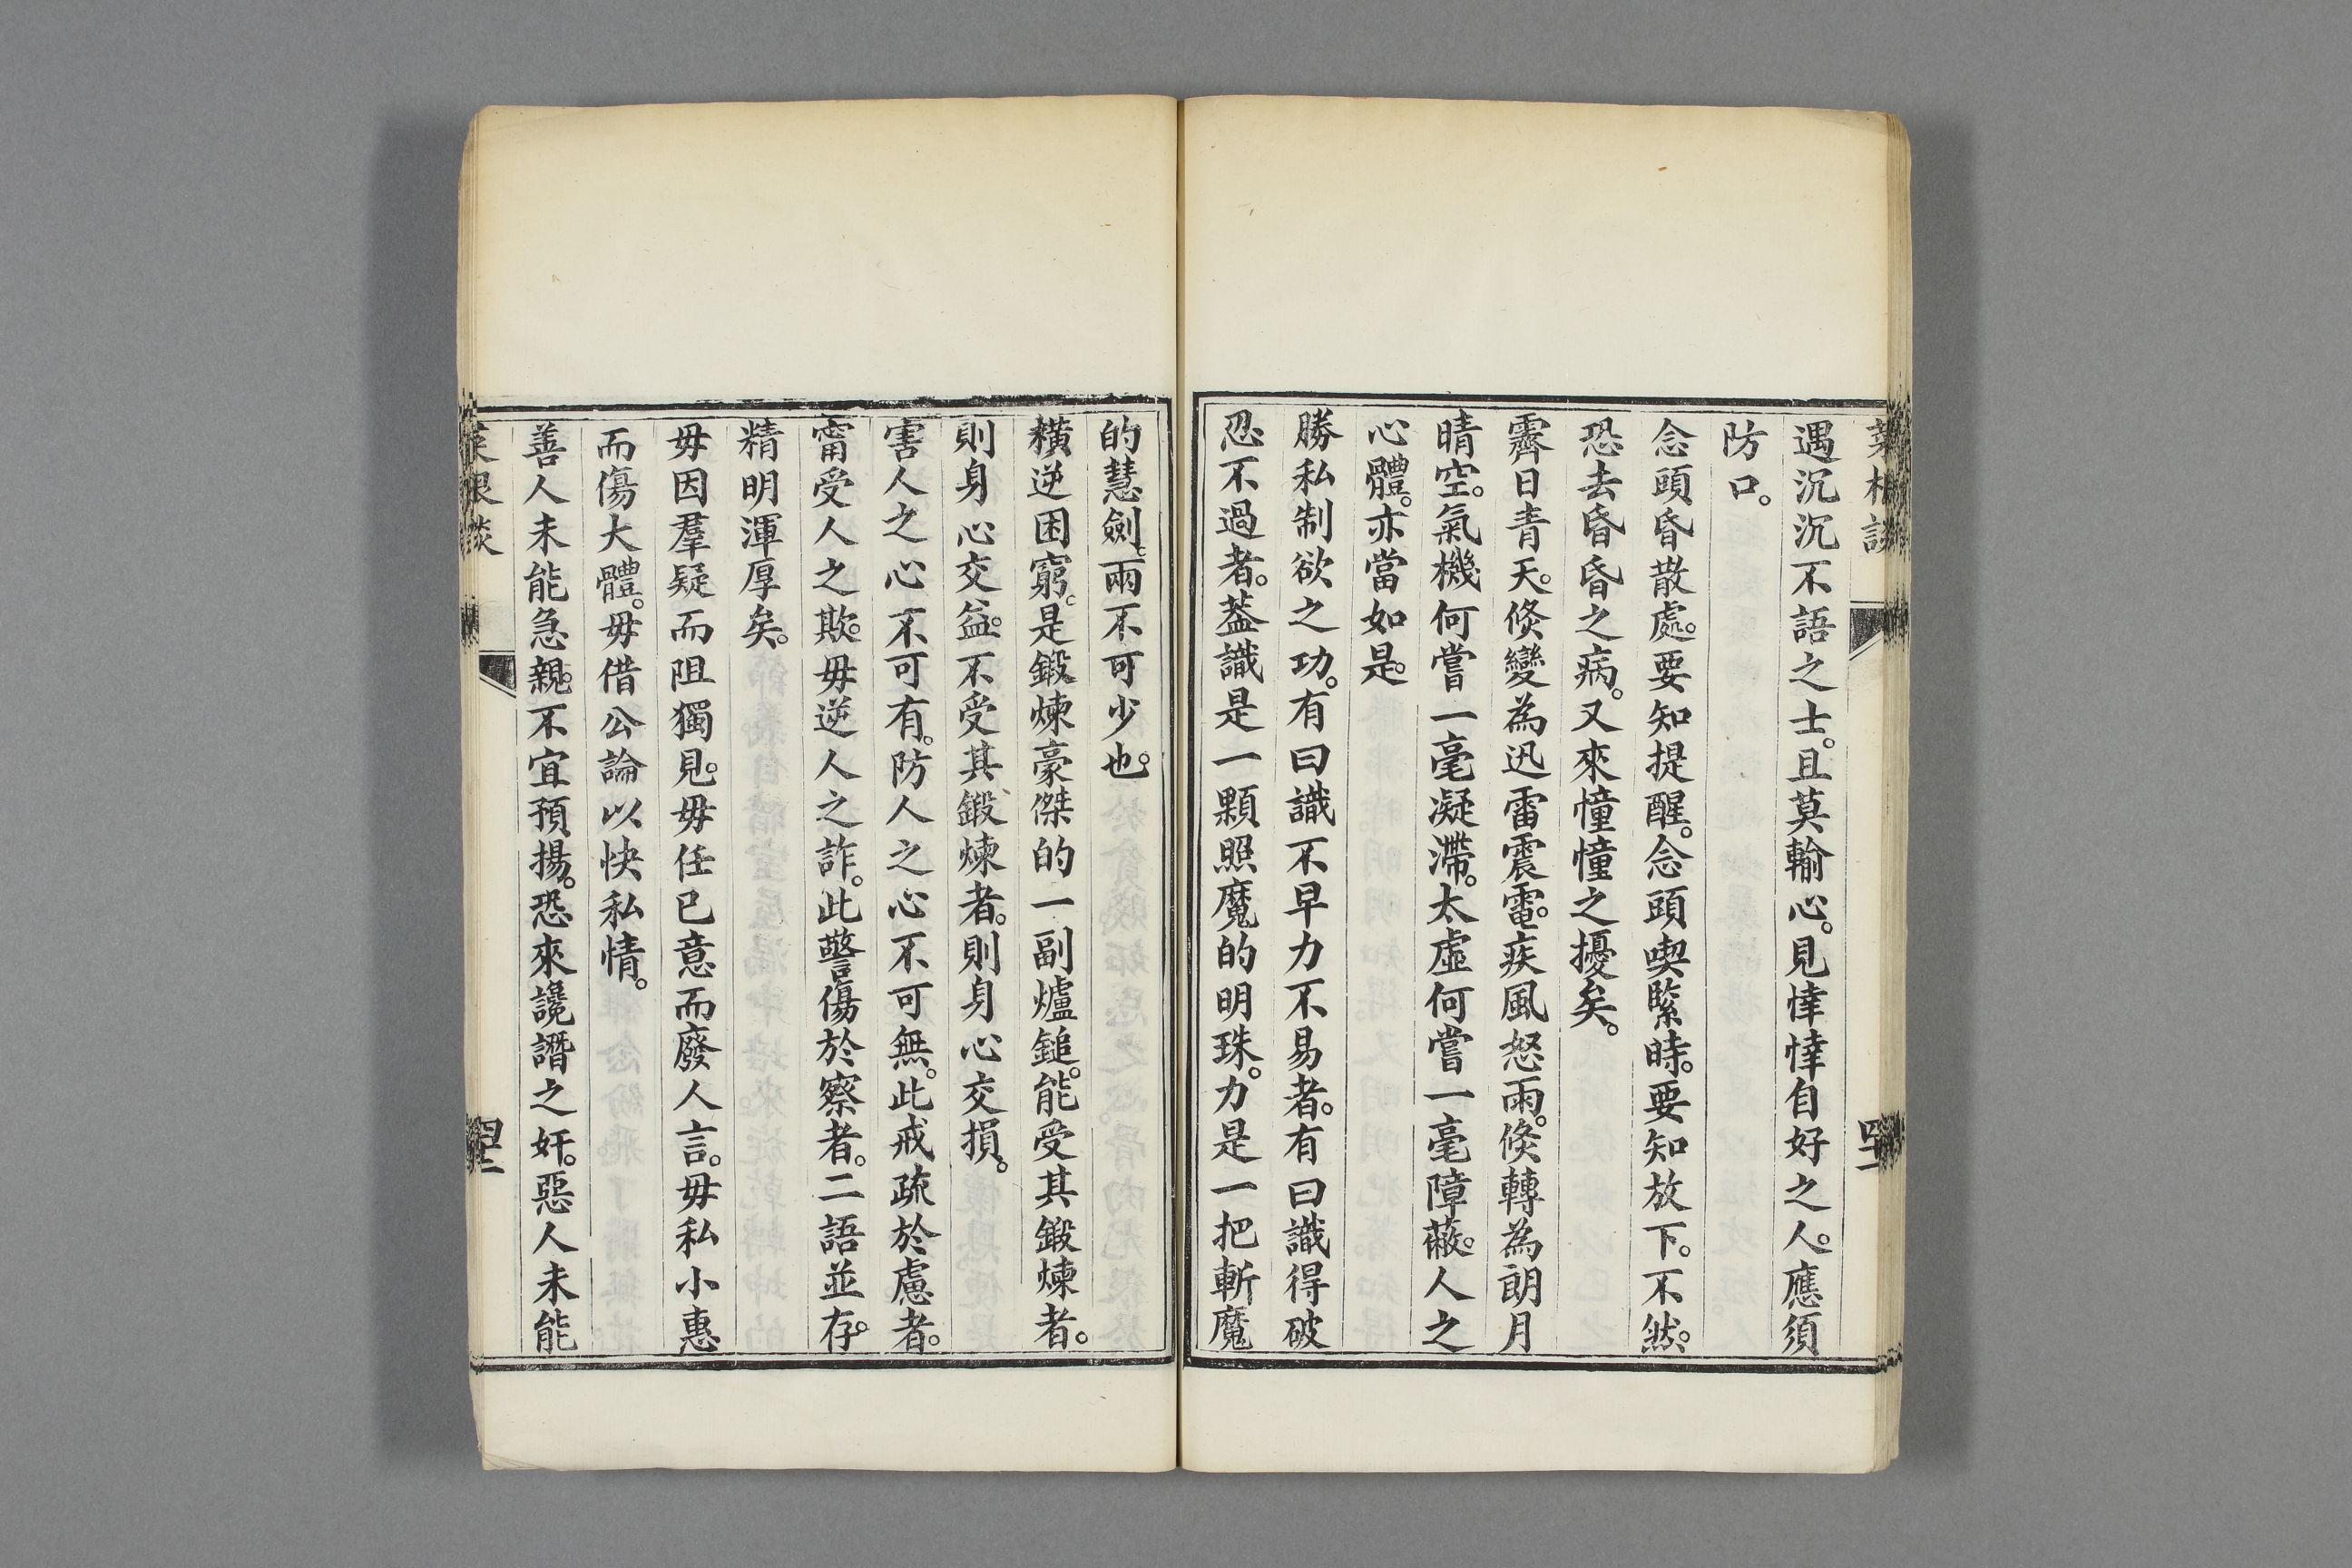 遇沉沉不語之士。且莫輸心。見悻悻自好之人。應須
防口。
念頭昏散處。要知提醒。念頭喫緊時。要知放下。不然。
恐去昏昏之病。又來憧憧之擾矣。
霽日青天。倐變為迅雷震電。疾風怒雨。倐轉為朗月
晴空。氣機何嘗一毫凝滯。太虛何嘗一毫障蔽。人之
心體。亦當如是。
勝私制欲之功。有曰識不早力不易者。有曰識得破
忍不過者。葢識是一顆照魔的明珠。力是一把斬魔
的慧劍。兩不可少也。
橫逆困窮。是鍛煉豪傑的一副爐鎚。能受其鍛煉者。
則身心交益。不受其鍛煉者。則身心交損。
害人之心不可有。防人之心不可無。此戒疏於慮者。
甯受人之欺。毋逆人之詐。此警傷於察者。二語並存。
精明渾厚矣。
毋因羣疑而阻獨見。毋任已意而廢人言。毋私小惠
而傷大體。毋借公論以快私情。
善人未能急親。不宜預揚。恐來讒譖之奸。惡人未能
菜根談